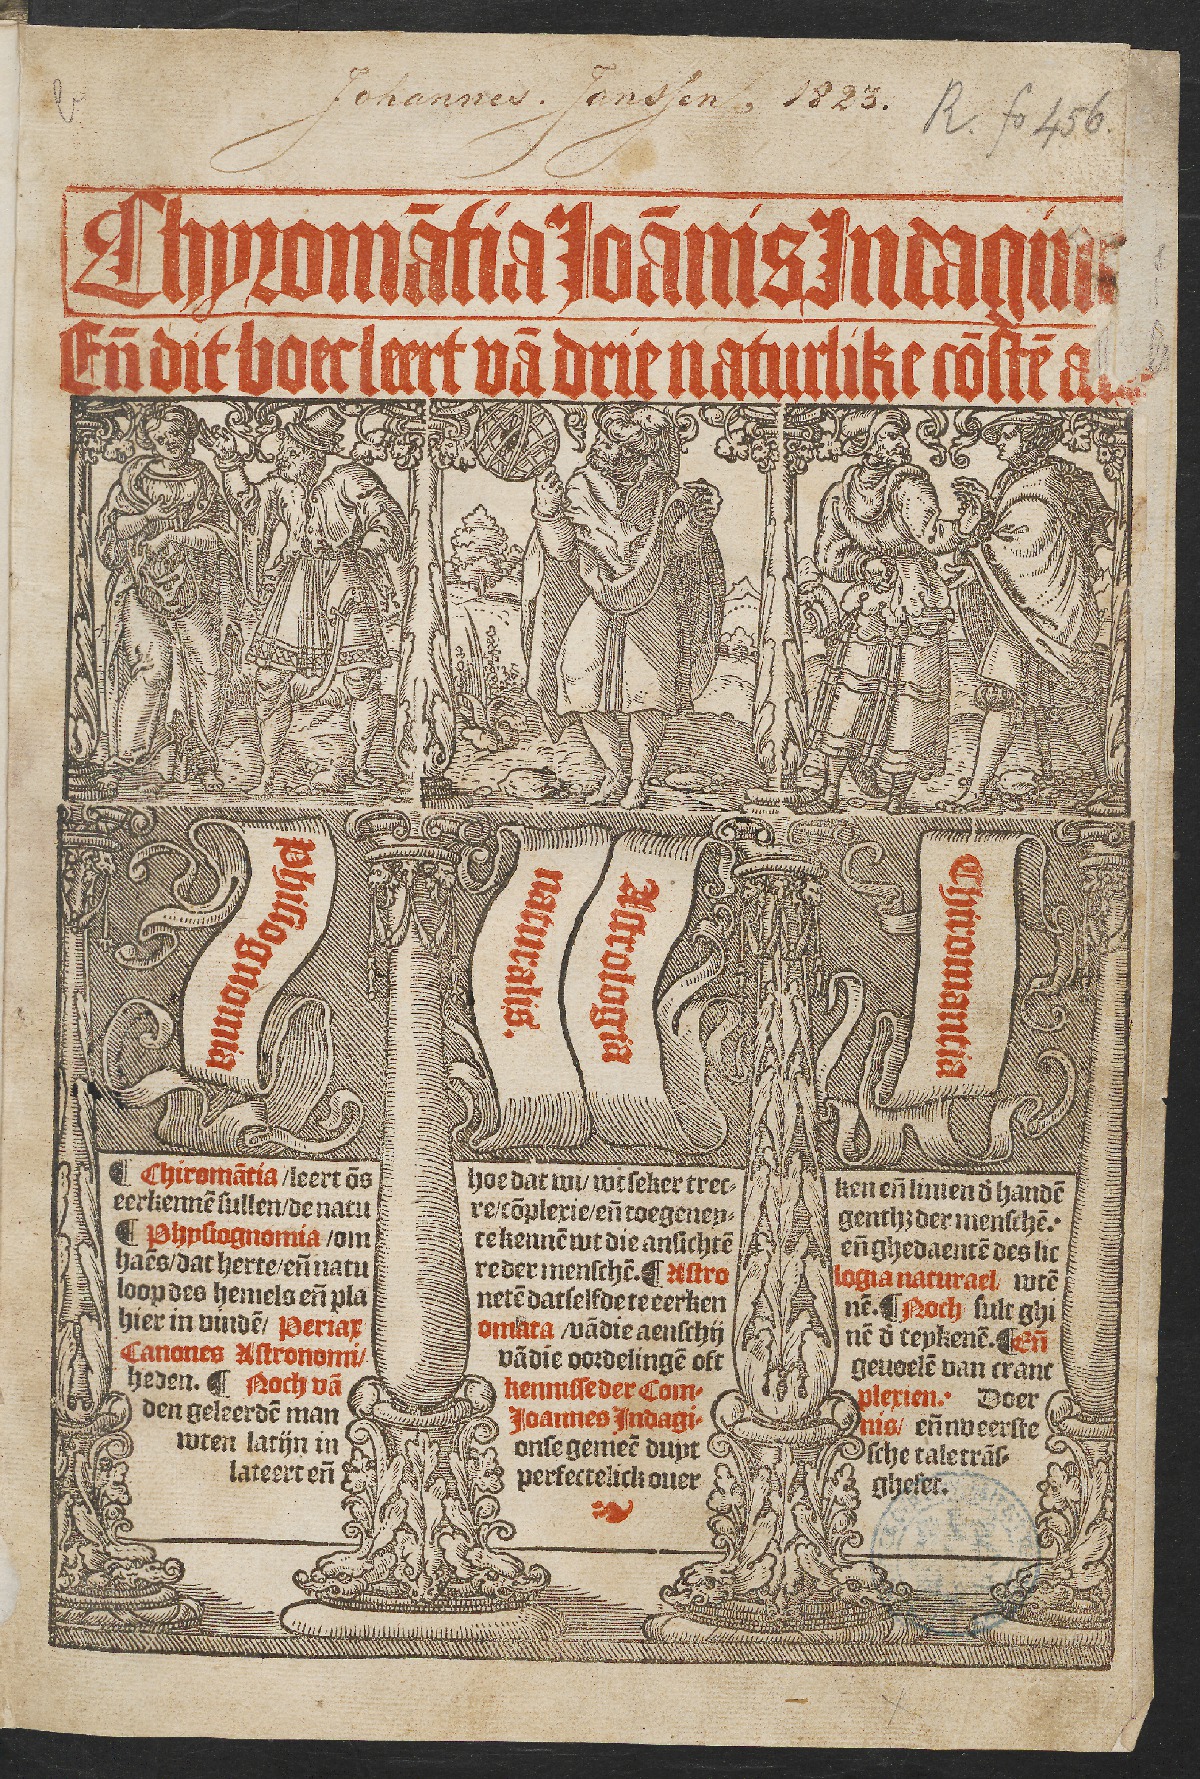 Johannes. Janssen, 1823.
R. fo 456.
Chyromātia Joānis Indagin
Eñ dit boec leert vā drie naturlike cōstē a
Phisiognomia
Astrologia
naturalis.
Chiromantia
¶ Chiromātia /leert ōs hoe dat wi/ wt seker trec- ken eñ linien đ handē
eerkennē sullen/de natu re/cōplexie/eñ toegeney- genthꝫ der menschē.
¶ Physiognomia /om te kennē wt die ansichtē eñ ghedaentē des lic
haēs/dat herte/eñ natu re der menschē.¶ Astro logia naturael, wtē
loop des hemels eñ pla netē datselfde te eerken nē.¶ Noch sult ghi
hier in vindē/ Periax omata /vā die aenschij nē đ teykenē.¶ Eñ
Canones Astronomi/ vā die oordelingē oft gevoelē van cranc
heden. ¶ Noch vā kennisse der Com- plexien. Doer
den geleerdē man Joannes Indagi- nis/ eñ nv eerste
wten latijn in onse gemeē duyt sche tale trās-
lateert eñ perfectelick ouer gheset.